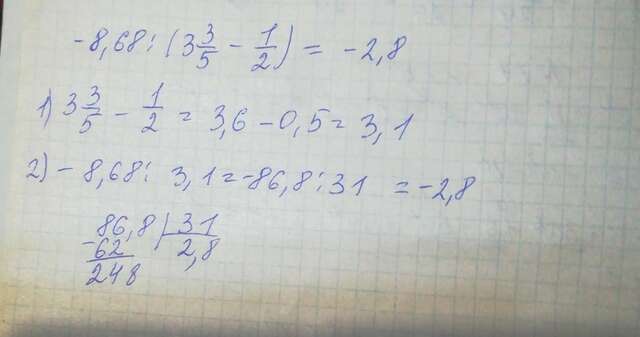 -8,68:(3 3/5 - 1/2) = -2,8
1) 3 3/5 - 1/2 = 3,6 - 0,5 = 3,1
2) - 8,68: 3,1 = -86,8:31 = -2,8
86,8 | 31
-62 | 2,8
248